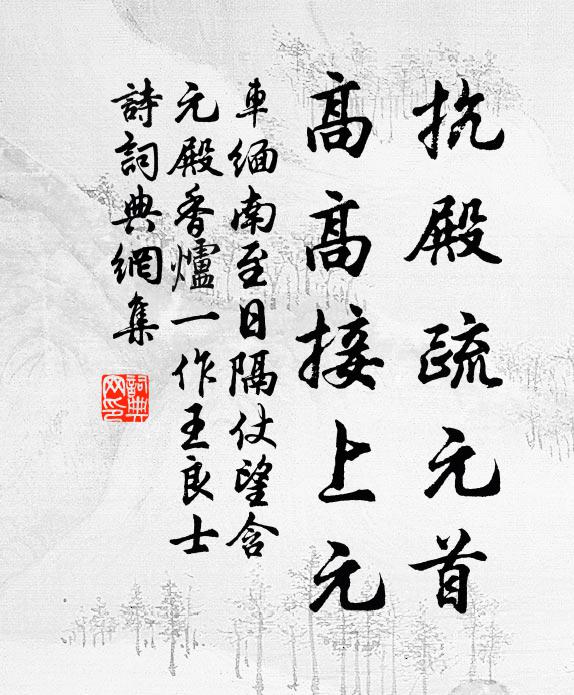 抗殿疏元首
高高接上元
車緬南至日隔仗望含
元殿香爐一作王良士
詩詞典網集
詞典
网印